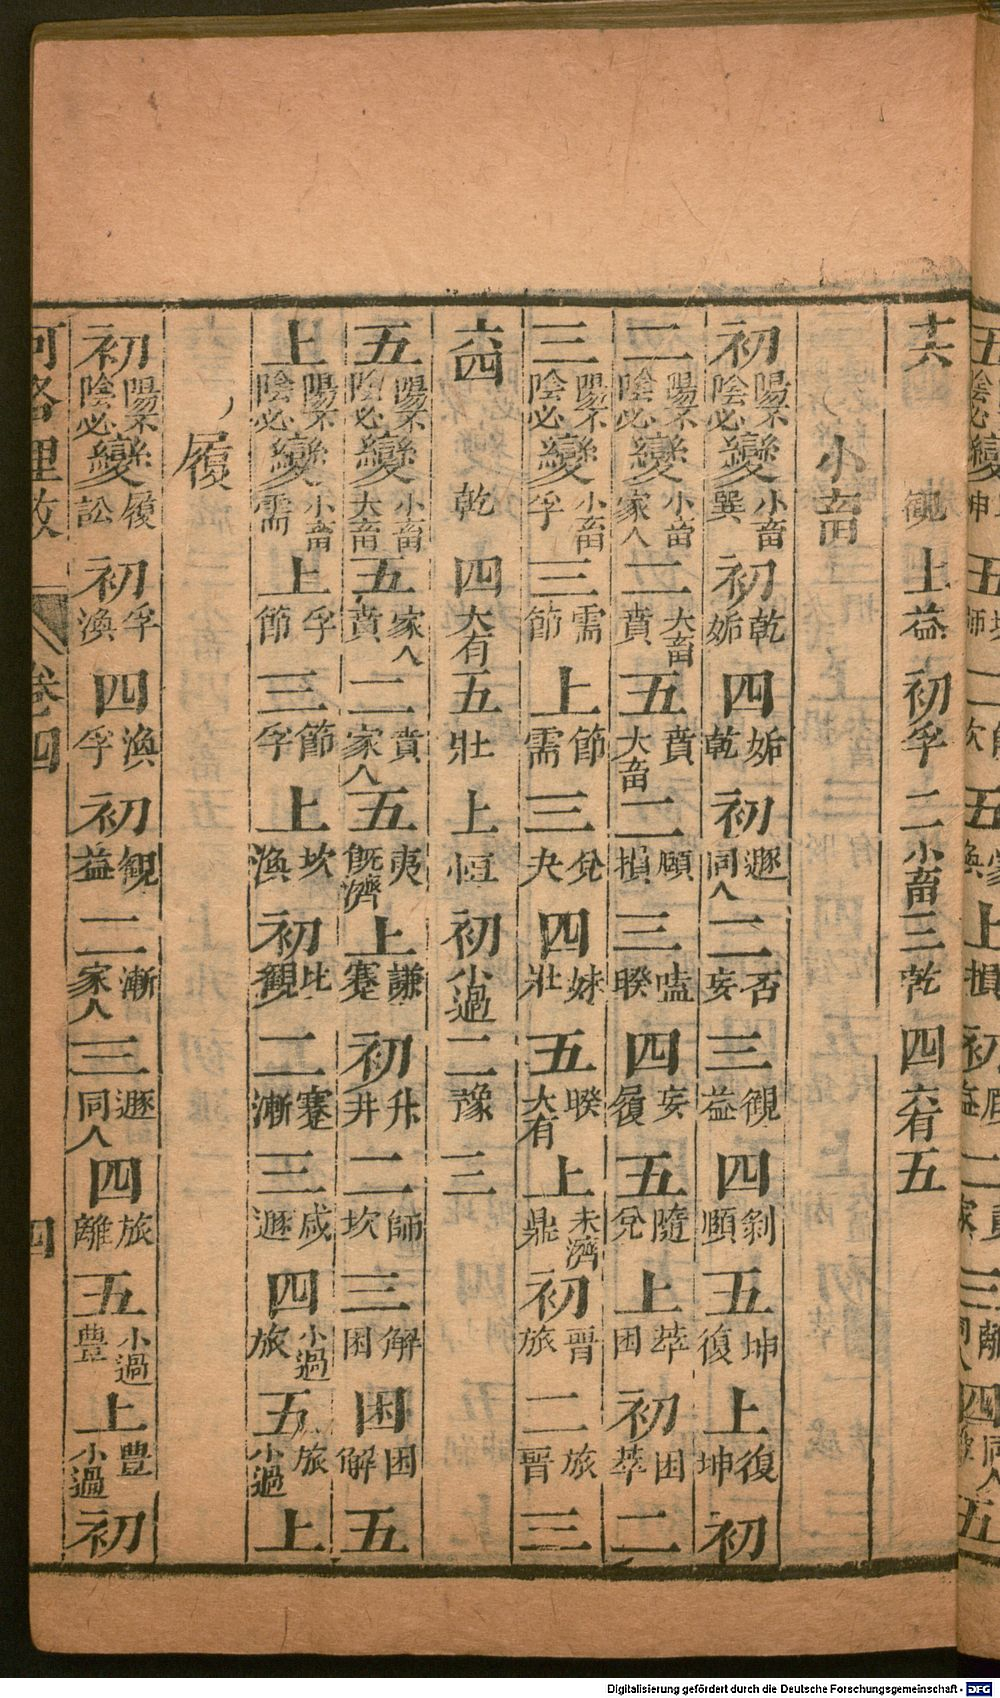 十六觀上益初孚二小畜三乾四大有五
小畜
初陽不陰必變小畜巽初乾姤四姤乾初遯同人二否妄三觀益四剝頤五坤復上復坤初
二陽不陰必變小畜家人二大畜賁五賁大畜二頤損三嗑睽四妄履五隨兌上萃困初困萃二
三陽不陰必變小畜孚三需節上節需三兌夬四妹壯五睽大有上未濟鼎初晉旅二旅晉三
六四乾四大有五壯上恒初小過二豫三
五陽不陰必變小畜大畜五家人賁二賁家人五夷旣濟上謙蹇初升井二師坎三解困困困解五
上陽不陰必變小畜需上孚節三節孚上坎渙初比觀二蹇漸三咸遯四小過旅五旅小過上
履
初陽不陰必變履訟初孚渙四渙孚初觀益二漸家人三遯同人四旅離五小過豊上豊小過初
河洛理數 卷四 四
Digitalisierung gefördert durch die Deutsche Forschungsgemeinschaft - DFG